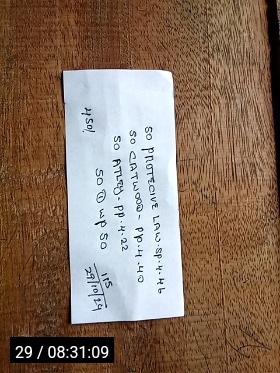 SO PROTECIVE LAW. SP. 4.46
SO CLATWOOD - PP. 4.40
SO ATLEY. PP. 4.22
SO ① UP SO
29/10/24
29 / 08:31:09